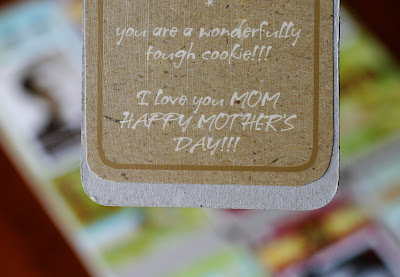 *
you are a wonderfully
tough cookie!!!
I love you MOM
HAPPY MOTHER'S
DAY!!!